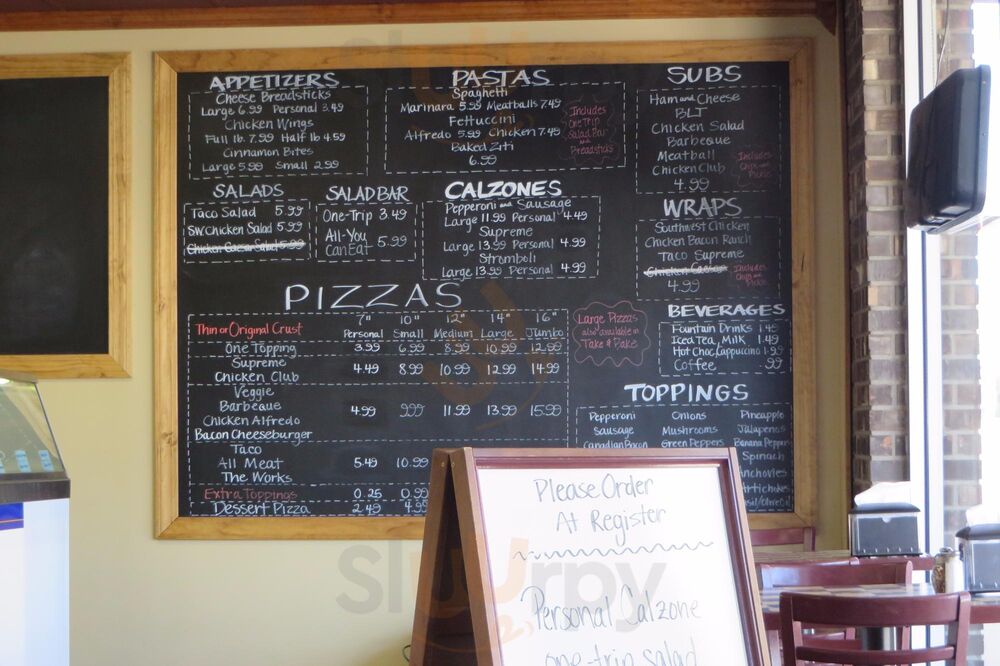 APPETIZERS
Cheese Breadsticks
Large 6.99 Personal 3.49
Chicken Wings
Full lb. 7.99 Half lb 4.59
Cinnamon Bites
Large 5.99 Small 2.99
PASTAS
Spaghetti
Marinara 5.99 Meatballs 7.49
Fettuccini
Alfredo 5.99 Chicken 7.49
Baked Ziti
6.99
Includes
One Trip
Salad Bar
and
Breadsticks
SUBS
Ham and Cheese
BLT
Chicken Salad
Barbeque
Meatball
Chicken Club
4.99
Includes
Chips and
Pickle
SALADS
Taco Salad 5.99
SW Chicken Salad 5.99
Chicken Caesar Salad 5.99
SALAD BAR
One-Trip 3.49
All-You
Can Eat 5.99
CALZONES
Pepperoni and Sausage
Large 11.99 Personal 4.49
Supreme
Large 13.99 Personal 4.99
Stromboli
Large 13.99 Personal 4.99
WRAPS
Southwest Chicken
Chicken Bacon Ranch
Taco Supreme
Chicken Caesar
4.99
Includes
Chips and
Pickle
PIZZAS
Thin or Original Crust
7" 10" 12" 14" 16"
Personal Small Medium Large Jumbo
One Topping 3.99 6.99 8.99 10.99 12.99
Supreme
Chicken Club 4.49 8.99 10.99 12.99 14.99
Veggie
Barbeque
Chicken Alfredo
Bacon Cheeseburger
4.99 9.99 11.99 13.99 15.99
Taco
All Meat 5.49 10.99
The Works
Extra Toppings 0.25 0.99
Dessert Pizza 2.49 4.99
Large Pizzas
also available in
Take & Bake
BEVERAGES
Fountain Drinks 1.45
Iced Tea, Milk 1.49
Hot Choc, Cappuccino 1.99
Coffee .99
TOPPINGS
Pepperoni Onions Pineapple
Sausage Mushrooms Jalapenos
Canadian Bacon Green Peppers Banana Peppers
Spinach
Anchovies
Artichokes
Please Order
At Register
Personal Calzone
one-trip salad
slurpy